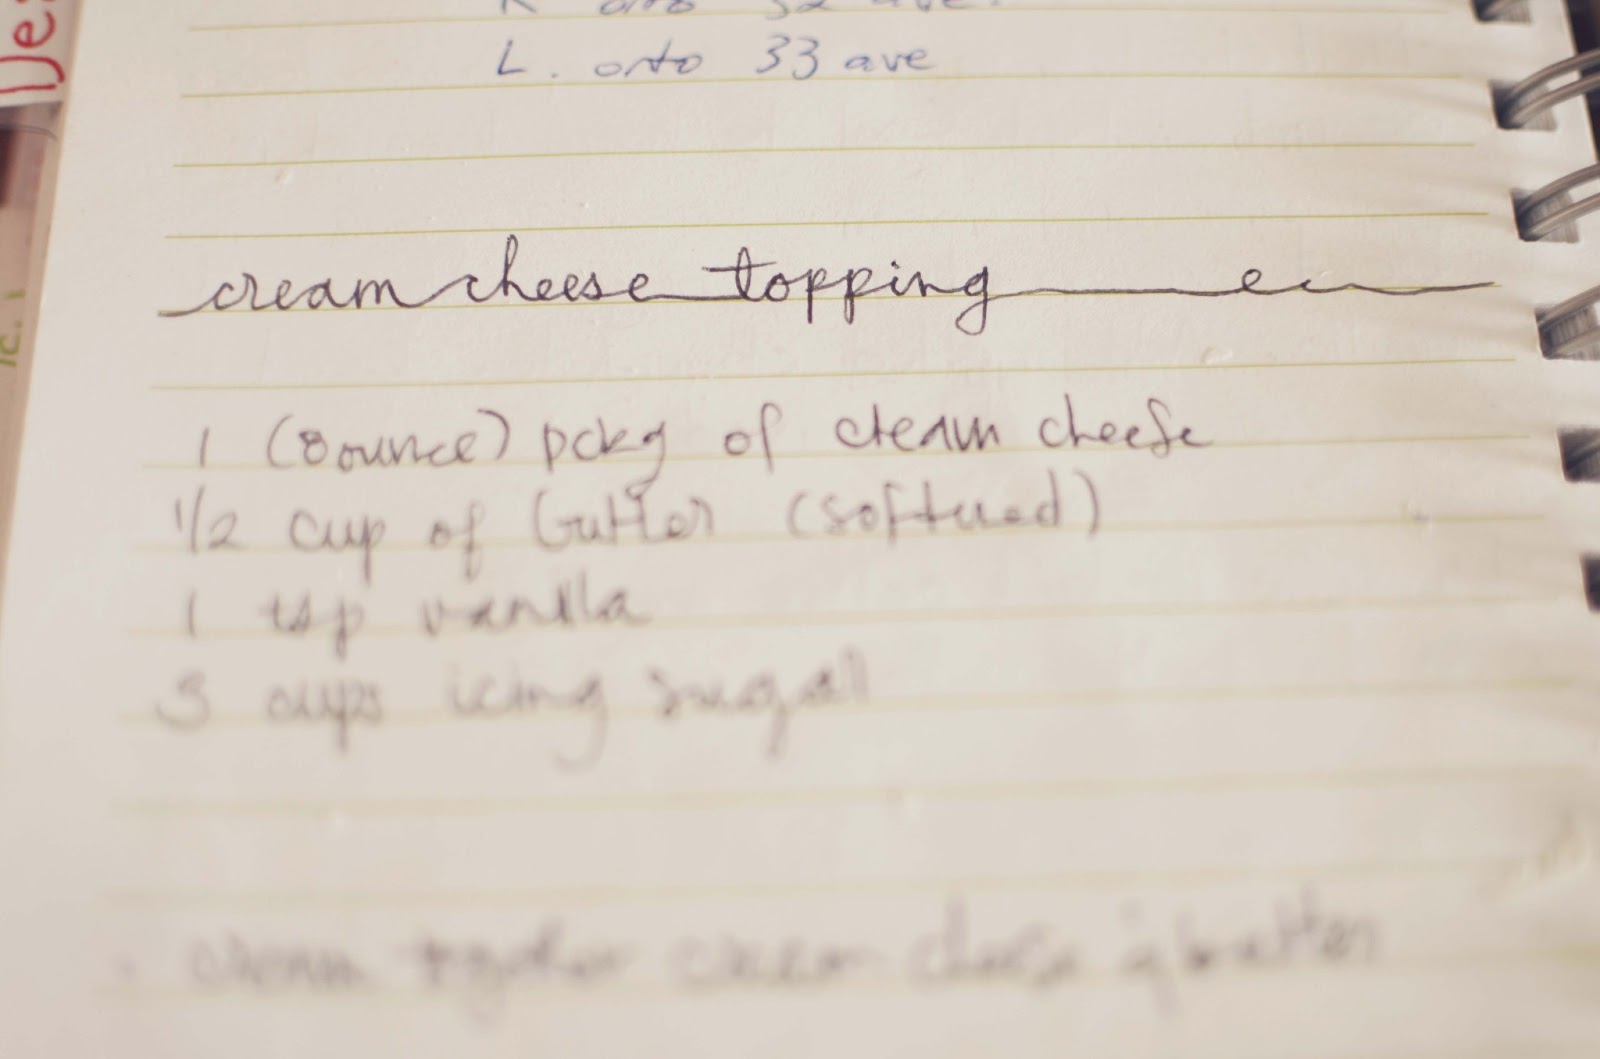 R onto 32 ave.
L. onto 33 ave
cream cheese topping
1 (8 ounce) pckg of cream cheese
1/2 cup of butter (softened)
1 tsp vanilla
3 cups icing sugar
cream together cream cheese & butter